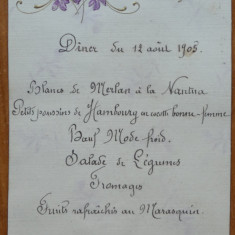 Dîner du 12 août 1905.
Blancs de Merlan à la Nantua
Petits poussins de Hambourg en cocotte bonne-femme
Bœuf Mode froid.
Salade de Légumes
Fromages
Fruits rafraîchis au Marasquin.